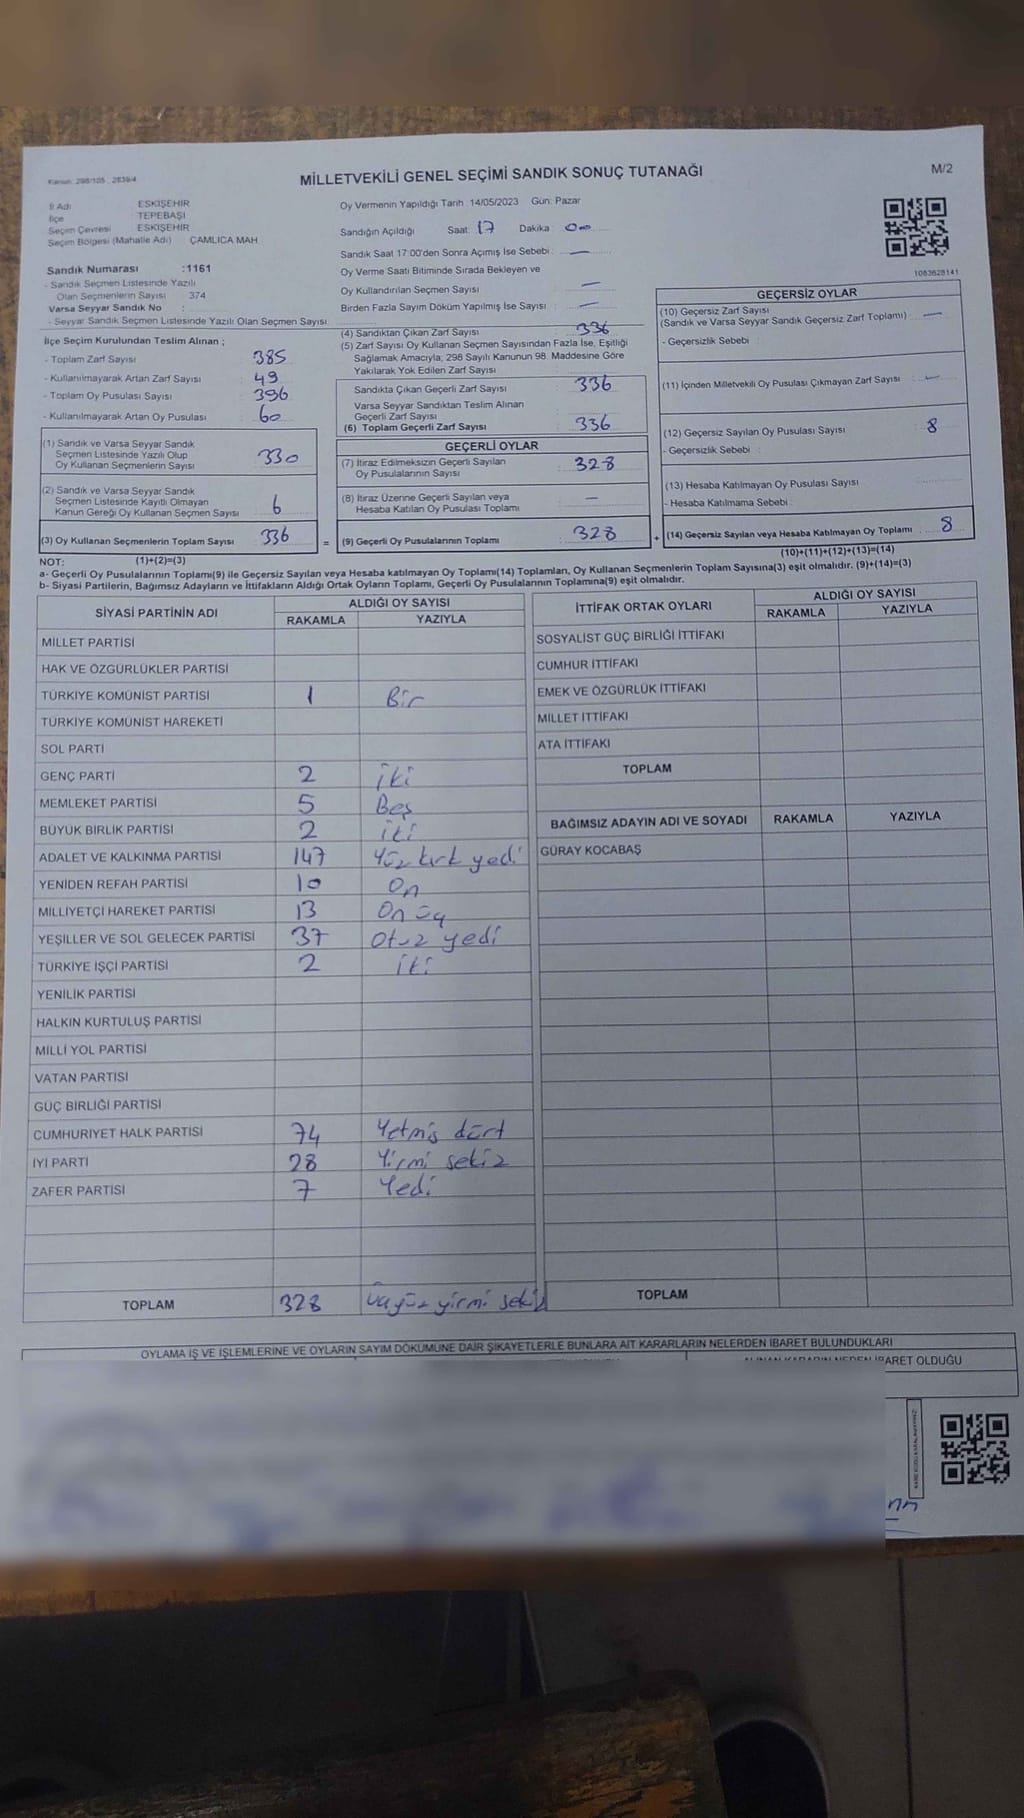 Kanun: 298/105 , 2839/4
MİLLETVEKİLİ GENEL SEÇİMİ SANDIK SONUÇ TUTANAĞI
M/2
İl Adı ESKİŞEHİR
İlçe TEPEBAŞI
Seçim Çevresi ESKİŞEHİR
Seçim Bölgesi (Mahalle Adı) ÇAMLICA MAH
Sandık Numarası :1161
- Sandık Seçmen Listesinde Yazılı
Olan Seçmenlerin Sayısı 374
Varsa Seyyar Sandık No :
- Seyyar Sandık Seçmen Listesinde Yazılı Olan Seçmen Sayısı
Oy Vermenin Yapıldığı Tarih :14/05/2023 Gün: Pazar
Sandığın Açıldığı Saat: 17 Dakika : 0 —
Sandık Saat 17:00'den Sonra Açımış İse Sebebi : —
Oy Verme Saati Bitiminde Sırada Bekleyen ve
Oy Kullandırılan Seçmen Sayısı —
Birden Fazla Sayım Döküm Yapılmış İse Sayısı —
1083628141
İlçe Seçim Kurulundan Teslim Alınan ;
- Toplam Zarf Sayısı 385
- Kullanılmayarak Artan Zarf Sayısı 49
- Toplam Oy Pusulası Sayısı 396
- Kullanılmayarak Artan Oy Pusulası 60
(1) Sandık ve Varsa Seyyar Sandık
Seçmen Listesinde Yazılı Olup
Oy Kullanan Seçmenlerin Sayısı 330
(2) Sandık ve Varsa Seyyar Sandık
Seçmen Listesinde Kayıtlı Olmayan
Kanun Gereği Oy Kullanan Seçmen Sayısı 6
(3) Oy Kullanan Seçmenlerin Toplam Sayısı 336
(4) Sandıktan Çıkan Zarf Sayısı 336
(5) Zarf Sayısı Oy Kullanan Seçmen Sayısından Fazla İse, Eşitliği
Sağlamak Amacıyla, 298 Sayılı Kanunun 98. Maddesine Göre
Yakılarak Yok Edilen Zarf Sayısı
Sandıkta Çıkan Geçerli Zarf Sayısı 336
Varsa Seyyar Sandıktan Teslim Alınan
Geçerli Zarf Sayısı
(6) Toplam Geçerli Zarf Sayısı 336
GEÇERLİ OYLAR
(7) İtiraz Edilmeksizin Geçerli Sayılan
Oy Pusulalarının Sayısı 328
(8) İtiraz Üzerine Geçerli Sayılan veya
Hesaba Katılan Oy Pusulası Toplamı —
= (9) Geçerli Oy Pusulalarının Toplamı 328
GEÇERSİZ OYLAR
(10) Geçersiz Zarf Sayısı
(Sandık ve Varsa Seyyar Sandık Geçersiz Zarf Toplamı) —
- Geçersizlik Sebebi :
(11) İçinden Milletvekili Oy Pusulası Çıkmayan Zarf Sayısı —
(12) Geçersiz Sayılan Oy Pusulası Sayısı 8
- Geçersizlik Sebebi :
(13) Hesaba Katılmayan Oy Pusulası Sayısı
- Hesaba Katılmama Sebebi :
+ (14) Geçersiz Sayılan veya Hesaba Katılmayan Oy Toplamı 8
NOT: (1)+(2)=(3)
(10)+(11)+(12)+(13)=(14)
a- Geçerli Oy Pusulalarının Toplamı(9) ile Geçersiz Sayılan veya Hesaba katılmayan Oy Toplamı(14) Toplamları, Oy Kullanan Seçmenlerin Toplam Sayısına(3) eşit olmalıdır. (9)+(14)=(3)
b- Siyasi Partilerin, Bağımsız Adayların ve İttifakların Aldığı Ortak Oyların Toplamı, Geçerli Oy Pusulalarının Toplamına(9) eşit olmalıdır.
SİYASİ PARTİNİN ADI ALDIĞI OY SAYISI
RAKAMLA YAZIYLA
MİLLET PARTİSİ
HAK VE ÖZGÜRLÜKLER PARTİSİ
TÜRKİYE KOMÜNİST PARTİSİ 1 Bir
TÜRKİYE KOMÜNİST HAREKETİ
SOL PARTİ
GENÇ PARTİ 2 iki
MEMLEKET PARTİSİ 5 Beş
BÜYÜK BİRLİK PARTİSİ 2 iki
ADALET VE KALKINMA PARTİSİ 147 Yüz kırk yedi
YENİDEN REFAH PARTİSİ 10 On
MİLLİYETÇİ HAREKET PARTİSİ 13 On üç
YEŞİLLER VE SOL GELECEK PARTİSİ 37 Otuz yedi
TÜRKİYE İŞÇİ PARTİSİ 2 iki
YENİLİK PARTİSİ
HALKIN KURTULUŞ PARTİSİ
MİLLİ YOL PARTİSİ
VATAN PARTİSİ
GÜÇ BİRLİĞİ PARTİSİ
CUMHURİYET HALK PARTİSİ 74 Yetmiş dört
İYİ PARTİ 28 Yirmi sekiz
ZAFER PARTİSİ 7 Yedi
TOPLAM 328 Üçyüz yirmi sekiz
İTTİFAK ORTAK OYLARI ALDIĞI OY SAYISI
RAKAMLA YAZIYLA
SOSYALİST GÜÇ BİRLİĞİ İTTİFAKI
CUMHUR İTTİFAKI
EMEK VE ÖZGÜRLÜK İTTİFAKI
MİLLET İTTİFAKI
ATA İTTİFAKI
TOPLAM
BAĞIMSIZ ADAYIN ADI VE SOYADI RAKAMLA YAZIYLA
GÜRAY KOCABAŞ
TOPLAM
OYLAMA İŞ VE İŞLEMLERİNE VE OYLARIN SAYIM DÖKÜMÜNE DAİR ŞİKAYETLERLE BUNLARA AİT KARARLARIN NELERDEN İBARET BULUNDUKLARI
OLDUĞU